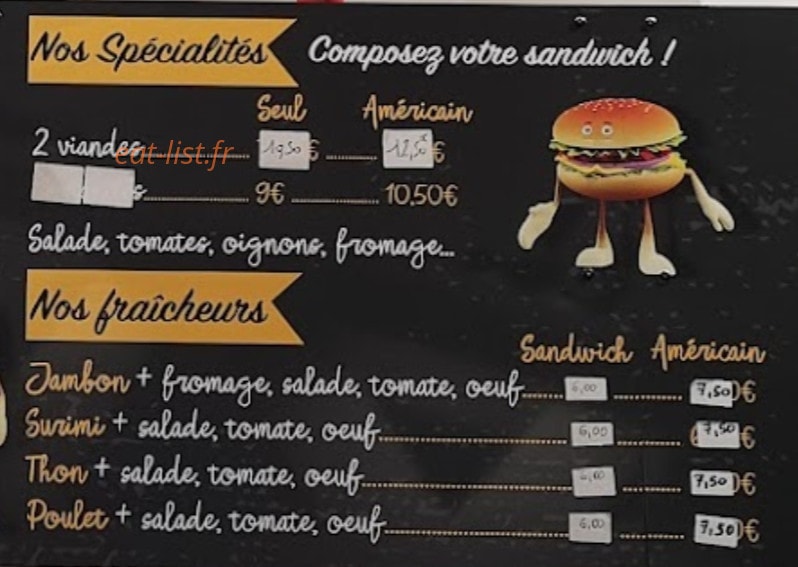 Nos Spécialités Composez votre sandwich !
Seul Américain
2 viandes 10,50€ 12,50€
eat-list.fr
s 9€ 10,50€
Salade, tomates, oignons, fromage...
Nos fraîcheurs
Sandwich Américain
Jambon + fromage, salade, tomate, oeuf 6,00 7,50€
Surimi + salade, tomate, oeuf 6,00 7,50€
Thon + salade, tomate, oeuf 6,00 7,50€
Poulet + salade, tomate, oeuf 6,00 7,50€